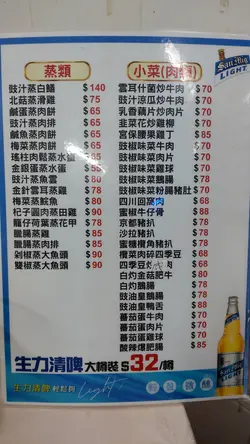 San Mig
LIGHT
蒸類
豉汁蒸白鱔 $140
北菇蒸滑雞 $75
鹹蛋蒸肉餅 $65
豉汁蒸肉排 $65
鹹魚蒸肉餅 $65
梅菜蒸肉餅 $65
瑤柱肉鬆蒸水蛋 $85
金銀蛋蒸水蛋 $65
豉汁蒸魚雲 $80
金針雲耳蒸雞 $78
梅菜蒸鯇魚 $80
杞子圓肉蒸田雞 $90
籠仔荷葉蒸花甲 $78
臘腸蒸雞 $85
臘腸蒸肉排 $85
剁椒蒸大魚頭 $90
雙椒蒸大魚頭 $90
小菜(肉類)
雲耳什菌炒牛肉 $70
豉汁涼瓜炒牛肉 $70
乳香藕片炒肉片 $70
韭菜花炒雞柳 $70
宮保腰果雞丁 $85
豉椒味菜牛肉 $70
豉椒味菜肉片 $70
豉椒味菜雞球 $70
豉椒味菜鵝腸 $70
豉椒味菜粉腸豬肚 $70
四川回窩肉 $68
蜜椒牛仔骨 $88
京都豬扒 $70
沙拉豬扒 $70
蜜糖欖角豬扒 $70
欖菜肉碎四季豆 $60
四季豆炒 $60
白灼金菇肥牛 $80
白灼鵝腸 $78
豉油皇鵝腸 $78
豉油皇鴨舌 $88
蕃茄蛋牛肉 $70
蕃茄蛋肉片 $70
蕃茄蛋雞球 $70
酸辣爆肥腸 $85
生力清啤 大樽裝 $32/樽
生力清啤 輕鬆啲 Light